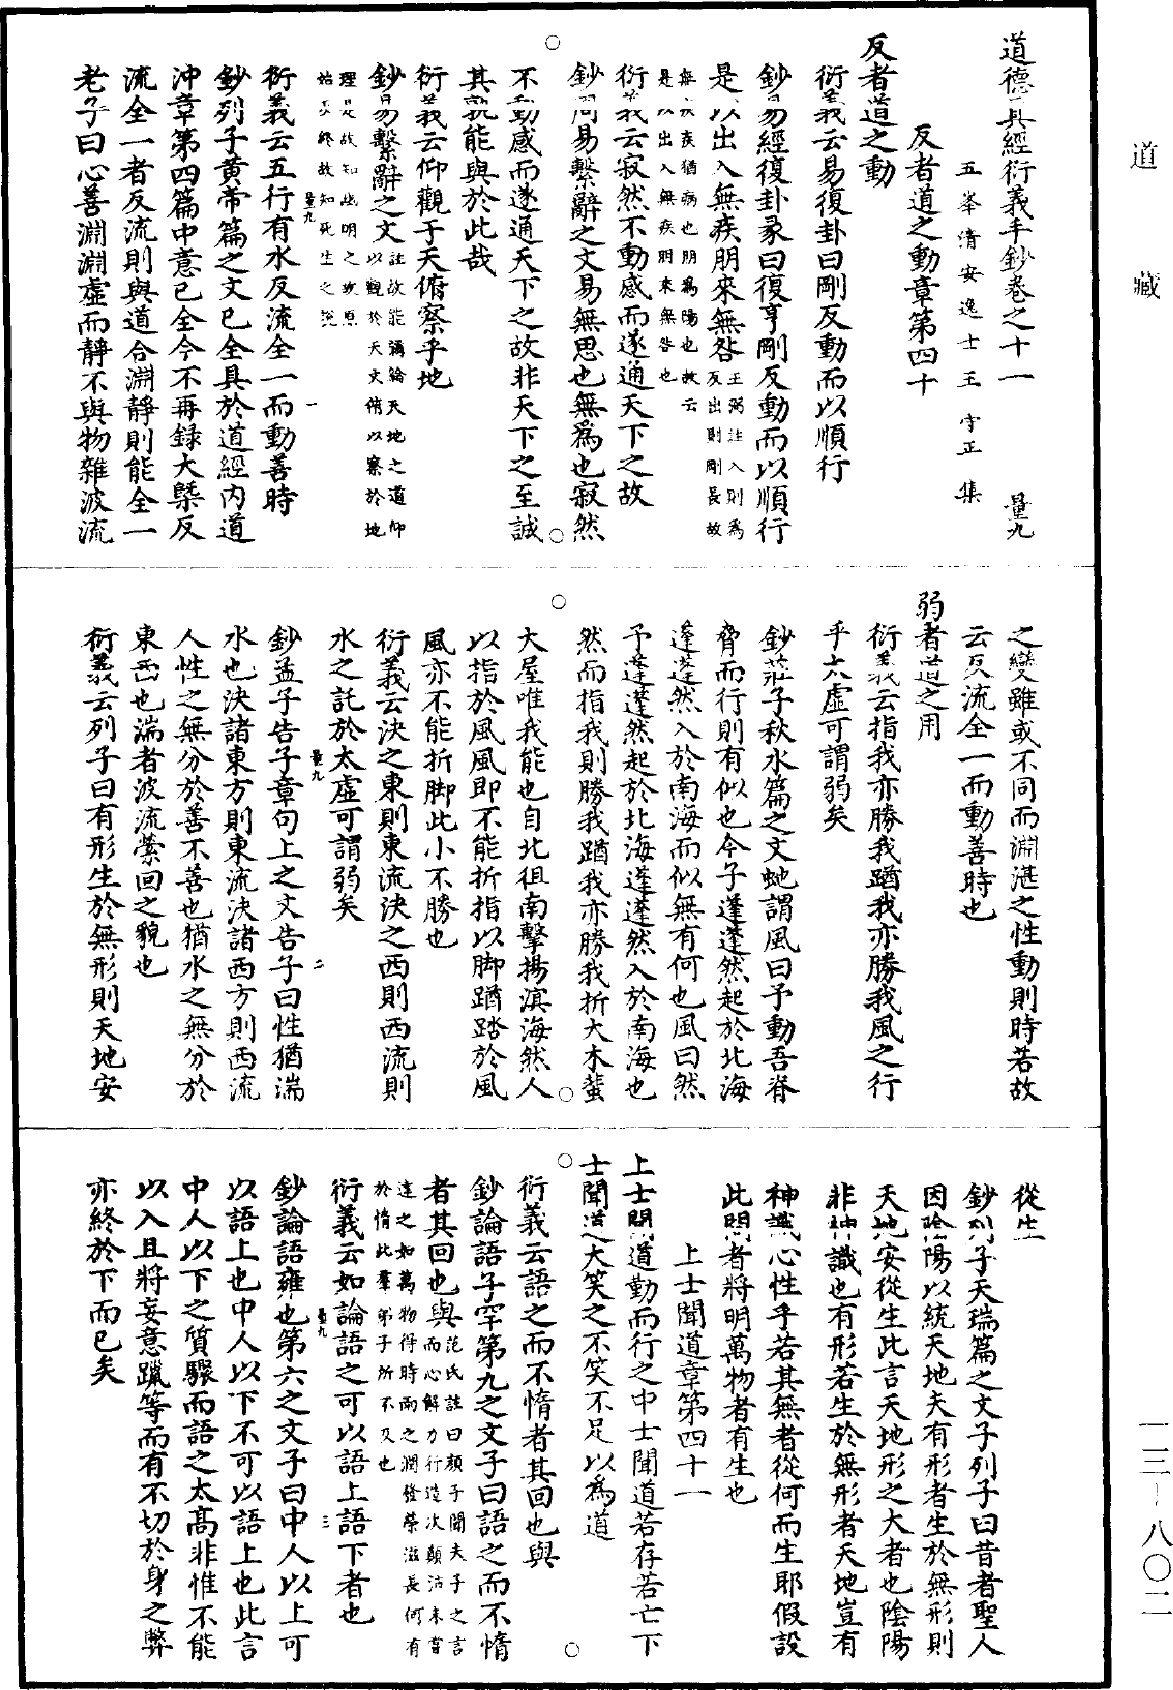 道藏
道德真經衍義手鈔卷之十一 量九
五峯清安逸士王守正集
反者道之動章第四十
反者道之動
衍義云易復卦曰剛反動而以順行
鈔易經復卦彖曰復亨剛反動而以順行
是以出入無疾朋來無咎王弼註入則為反出則剛長故
無疾疾猶病也朋為陽也故云是以出入無疾朋來無咎也
衍義云寂然不動感而遂通天下之故
鈔周易繫辭之文易無思也無為也寂然
不動感而遂通天下之故非天下之至誠
其孰能與於此哉
衍義云仰觀于天俯察乎地
鈔易繫辭之文註故能彌綸天地之道仰以觀於天文俯以察於地
理是故知幽明之故原始反終故知死生之說
衍義云五行有水反流全一而動善時
量九 一
鈔列子黃帝篇之文已全具於道經内道
沖章第四篇中意已全今不再録大槩反
流全一者反流則與道合淵靜則能全一
老子曰心善淵淵虛而靜不與物雜波流
之變雖或不同而淵湛之性動則時若故
云反流全一而動善時也
弱者道之用
衍義云指我亦勝我蹈我亦勝我風之行
乎太虛可謂弱矣
鈔莊子秋水篇之文虵謂風曰予動吾脊
脅而行則有似也今子蓬蓬然起於北海
蓬蓬然入於南海而似無有何也風曰然
予蓬蓬然起於北海蓬蓬然入於南海也
然而指我則勝我蹈我亦勝我折大木蜚
大屋唯我能也自北徂南擊揚溟海然人
以指於風風即不能折指以脚蹈踏於風
風亦不能折脚此小不勝也
衍義云決之東則東流決之西則西流則
水之託於太虛可謂弱矣
量九 二
鈔孟子告子章句上之文告子曰性猶湍
水也決諸東方則東流決諸西方則西流
人性之無分於善不善也猶水之無分於
東西也湍者波流縈回之貌也
衍義云列子曰有形生於無形則天地安
從生
鈔列子天瑞篇之文子列子曰昔者聖人
因陰陽以統天地夫有形者生於無形則
天地安從生此言天地形之大者也陰陽
非神識也有形若生於無形者天地豈有
神識心性乎若其無者從何而生耶假設
此問者將明萬物者有生也
上士聞道章第四十一
上士聞道勤而行之中士聞道若存若亡下
士聞道大笑之不笑不足以為道
衍義云語之而不惰者其回也與
鈔論語子罕第九之文子曰語之而不惰
者其回也與范氏註曰顏子聞夫子之言而心解力行造次顛沛未嘗
違之如萬物得時雨之潤發榮滋長何有於惰此羣弟子所不及也
衍義云如論語之可以語上語下者也
量九 三
鈔論語雍也第六之文子曰中人以上可
以語上也中人以下不可以語上也此言
中人以下之質驟而語之太高非惟不能
以入且將妄意躐等而有不切於身之弊
亦終於下而已矣
一三-八〇二